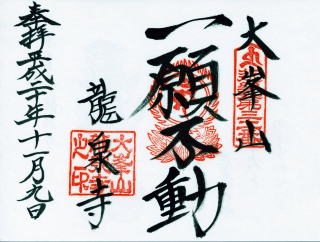 大峯山
一願不動
龍泉寺
奉拝平成二十一年十一月九日
大峯山
龍泉寺
之印